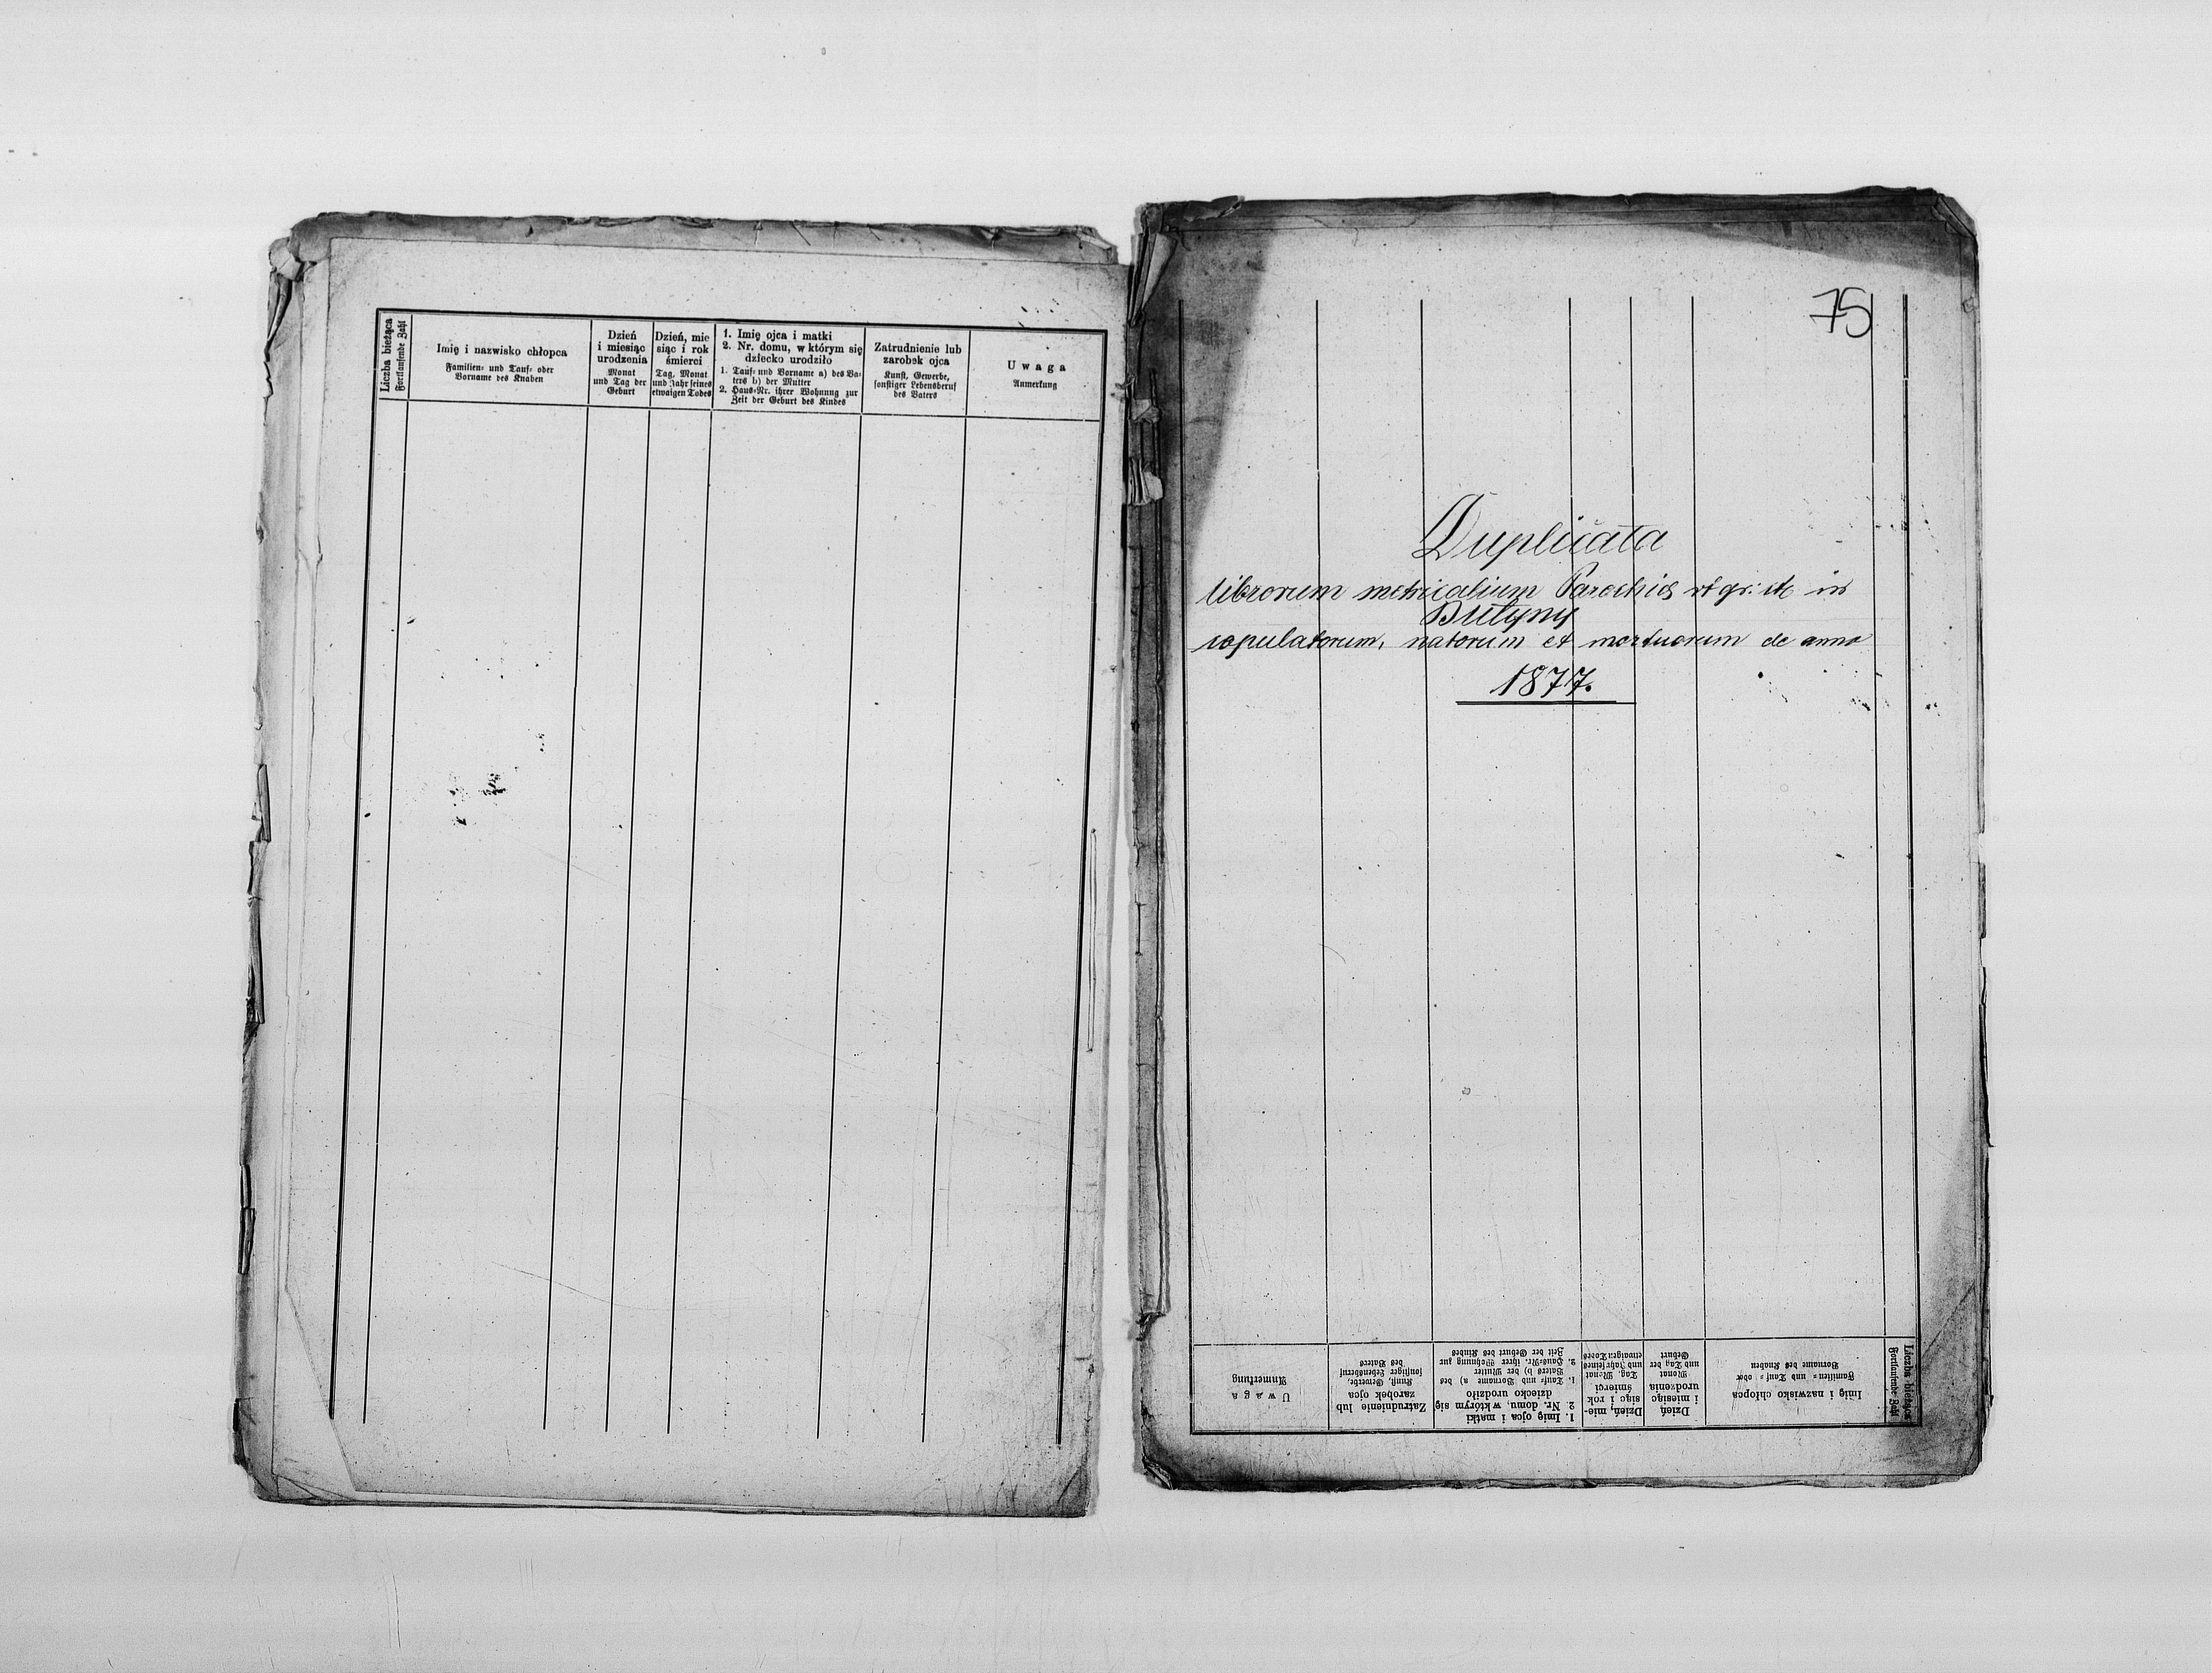 Liczba bieżąca
Fortlaufende Zahl
Imię i nazwisko chłopca
Familien= und Tauf= oder
Vorname des Knaben
Dzień
i miesiąc
urodzenia
Monat
und Tag der
Geburt
Dzień, mie
siąc i rok
śmierci
Tag, Monat
und Jahr seines
etwaigen Todes
1. Imię ojca i matki
2. Nr. domu, w którym się
dziecko urodziło
1. Tauf= und Vorname a) des Va=
ters b) der Mutter
2. Haus=Nr. ihrer Wohnung zur
Zeit der Geburt des Kindes
Zatrudnienie lub
zarobek ojca
Kunst, Gewerbe,
sonstiger Lebensberuf
des Vaters
Uwaga
Anmerkung
75
Duplicata
librorum metricalium Parochiae gr: in
Butyny
copulatorum, natorum et mortuorum de anno
1877.
Liczba bieżąca
Fortlaufende Zahl
Imię i nazwisko chłopca
Familien= und Tauf= oder
Vorname des Knaben
Dzień
i miesiąc
urodzenia
Monat
und Tag der
Geburt
Dzień, mie-
siąc i rok
śmierci
Tag, Monat
und Jahr seines
etwaigen Todes
1. Imię ojca i matki
2 Nr. domu, w którym się
dziecko urodziło
1. Tauf= und Vorname a) des
Vaters b) der Mutter
2. Haus=Nr. ihrer Wohnung zur
Zeit der Geburt des Kindes
Zatrudnienie lub
zarobek ojca
Kunst, Gewerbe,
sonstiger Lebensberuf
des Vaters
Uwaga
Anmerkung